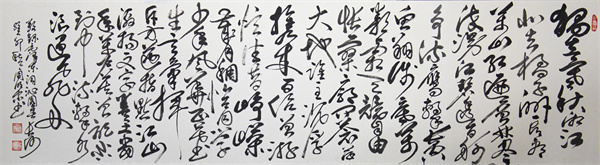 独立寒秋湘江
北去橘子洲头看
万山红遍层林尽染
漫江碧透百舸
争流鹰击长空
鱼翔浅底万
类霜天竞自由
怅寥廓问苍茫
大地谁主沉浮
携来百侣曾游
忆往昔峥嵘
岁月稠恰同学
少年风华正茂书
生意气挥斥
方遒指点江山
激扬文字粪土
当年万户侯曾记否
到中流击水
浪遏飞舟
敬录毛泽东词沁园春长沙